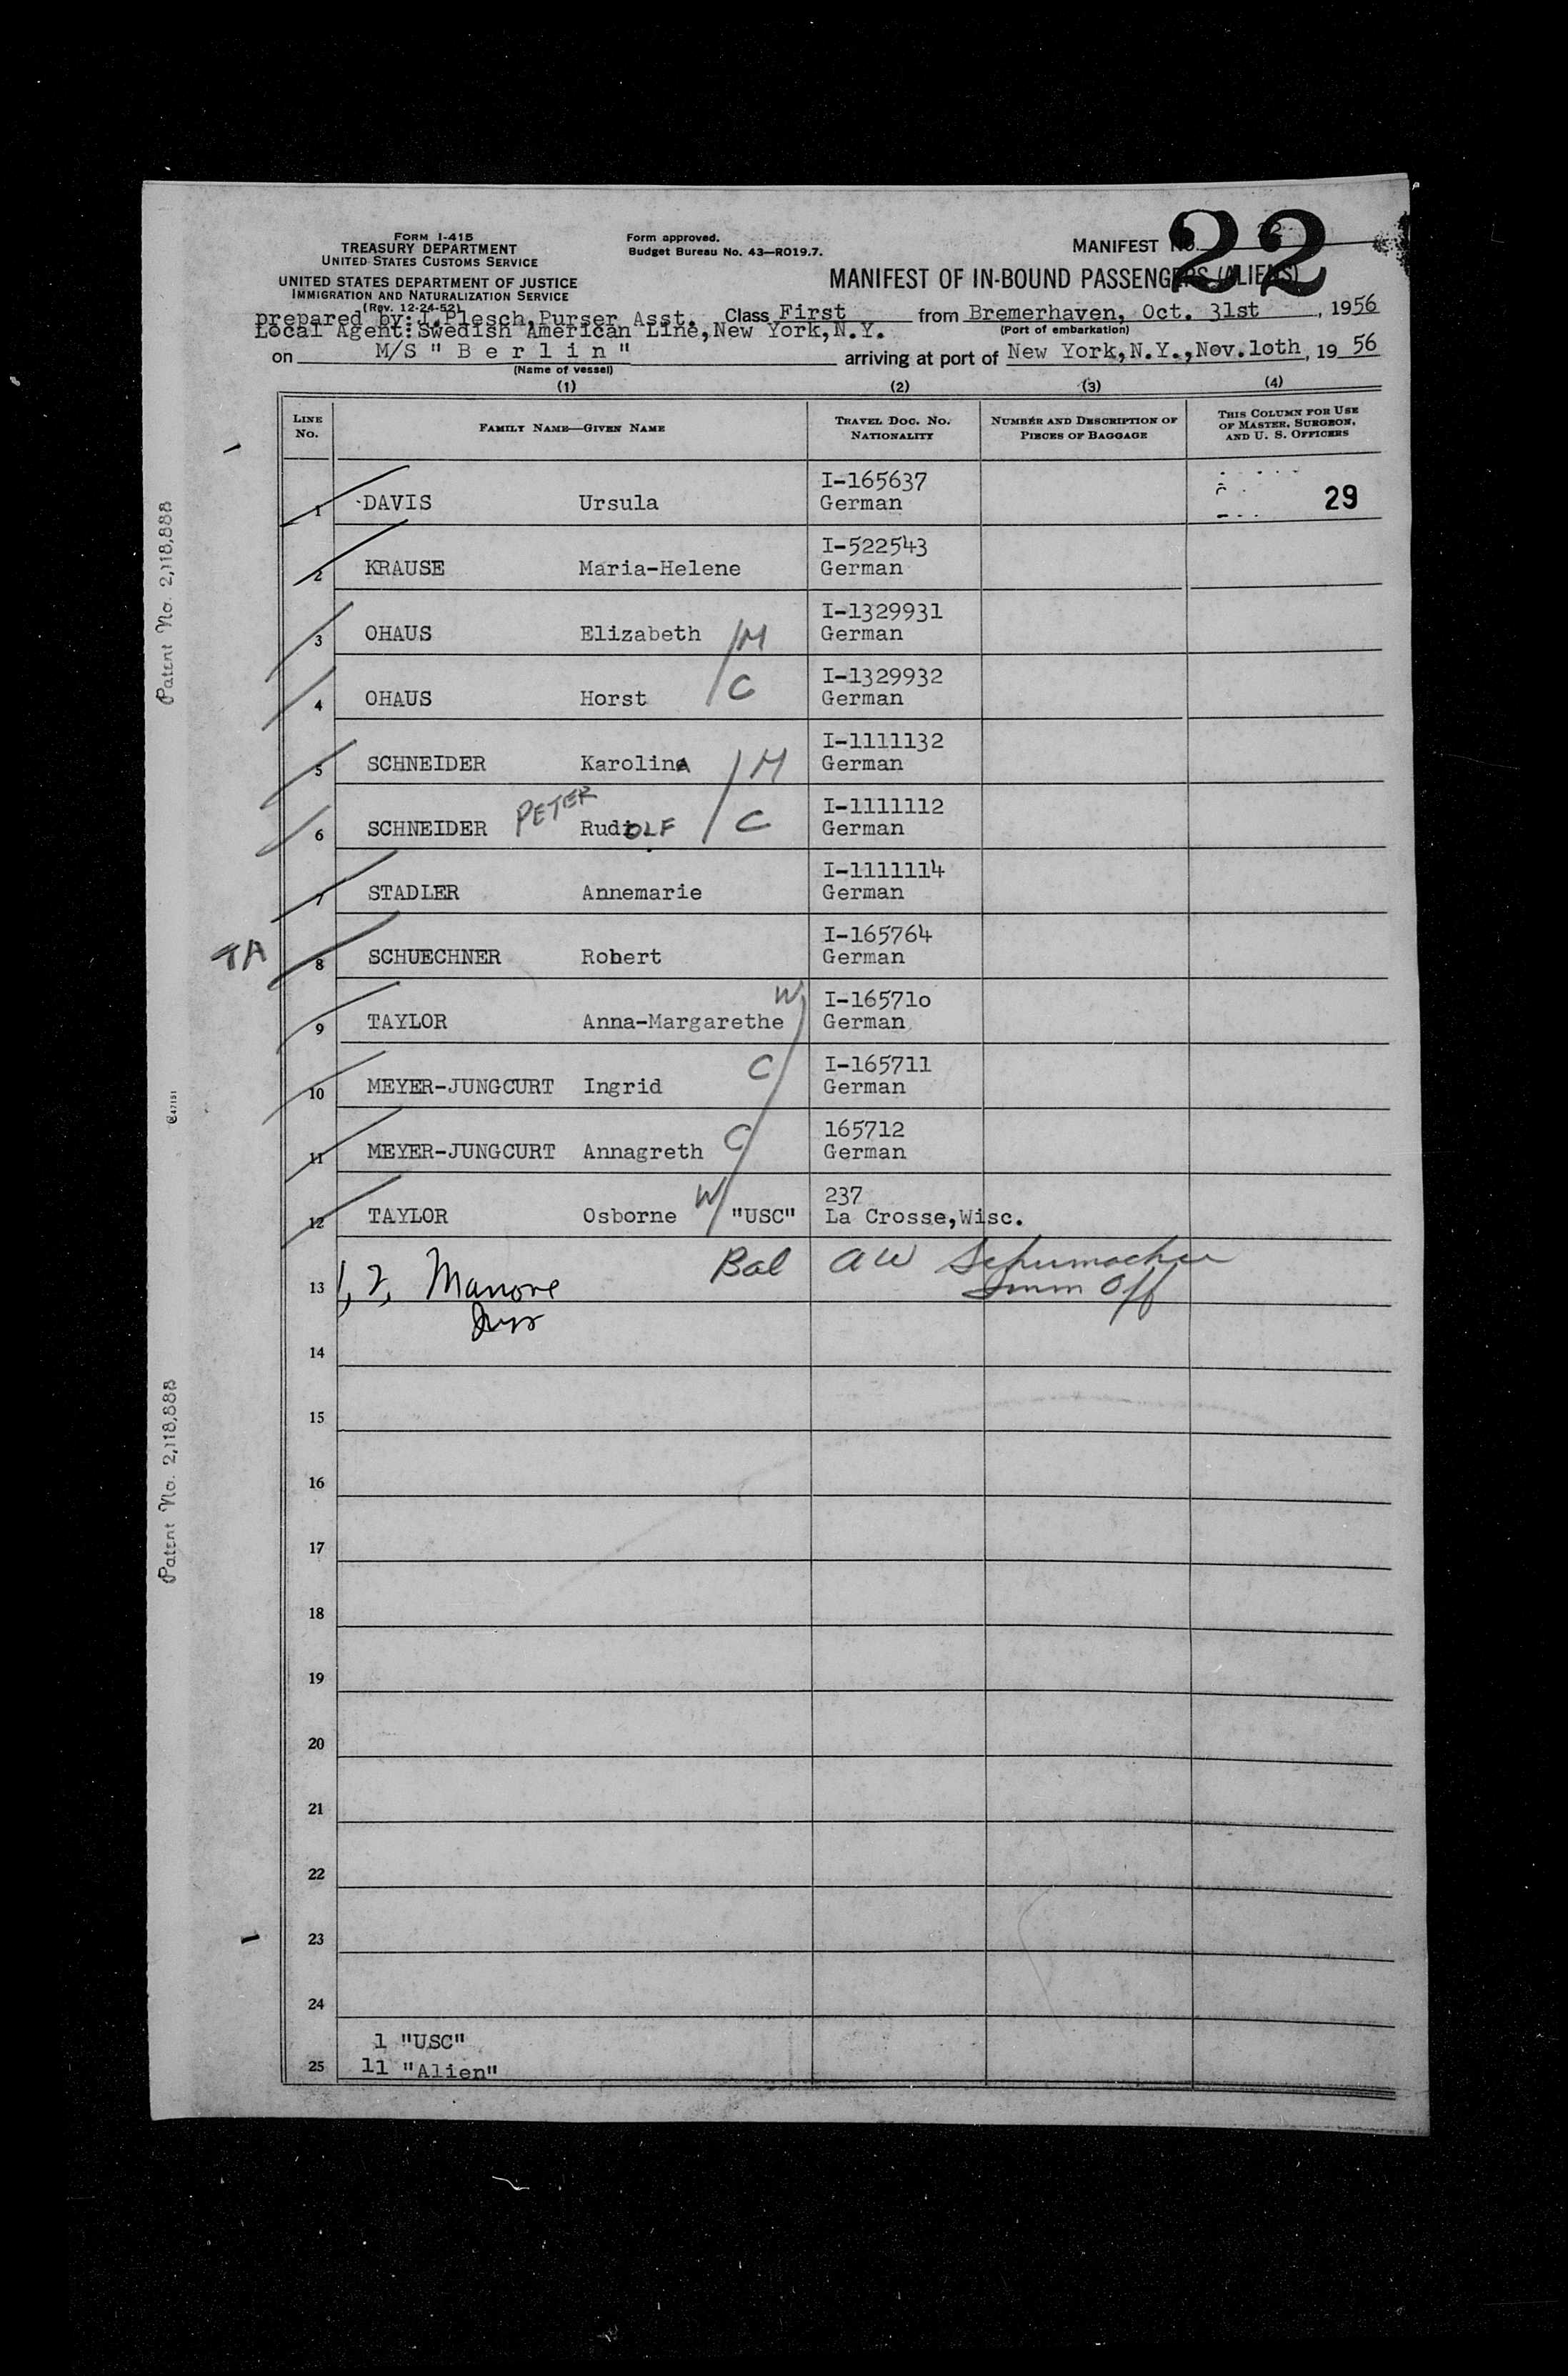 FORM I-415
TREASURY DEPARTMENT
UNITED STATES CUSTOMS SERVICE
UNITED STATES DEPARTMENT OF JUSTICE
IMMIGRATION AND NATURALIZATION SERVICE
(Rev. 12-24-52)
Form approved.
Budget Bureau No. 43—RO19.7.
MANIFEST No. 22
MANIFEST OF IN-BOUND PASSENGERS (ALIENS)
prepared by: I.Plesch,Purser Asst. Class First from Bremerhaven, Oct. 31st, 1956
Local Agent:Swedish American Line,New York,N.Y. (Port of embarkation)
on M/S " B e r l i n " arriving at port of New York,N.Y.,Nov.loth, 19 56
(Name of vessel)
(1) (2) (3) (4)
LINE No. FAMILY NAME—GIVEN NAME TRAVEL DOC. NO. NATIONALITY NUMBER AND DESCRIPTION OF PIECES OF BAGGAGE THIS COLUMN FOR USE OF MASTER, SURGEON, AND U. S. OFFICERS
I-165637
1 DAVIS Ursula German 29
I-522543
2 KRAUSE Maria-Helene German
I-1329931
3 OHAUS Elizabeth M German
I-1329932
4 OHAUS Horst C German
I-1111132
5 SCHNEIDER Karolina M German
I-1111112
6 SCHNEIDER PETER RudOLF C German
I-1111114
7 STADLER Annemarie German
I-165764
TA 8 SCHUECHNER Robert German
W I-16571o
9 TAYLOR Anna-Margarethe German
C I-165711
10 MEYER-JUNGCURT Ingrid German
165712
11 MEYER-JUNGCURT Annagreth C German
237
12 TAYLOR Osborne W "USC" La Crosse,Wisc.
13 1, 2, Manone Bal AW Schumacher
Imm Off
14
15
16
17
18
19
20
21
22
23
24
1 "USC"
25 11 "Alien"
Patent No. 2,118,888
Patent No. 2,118,888